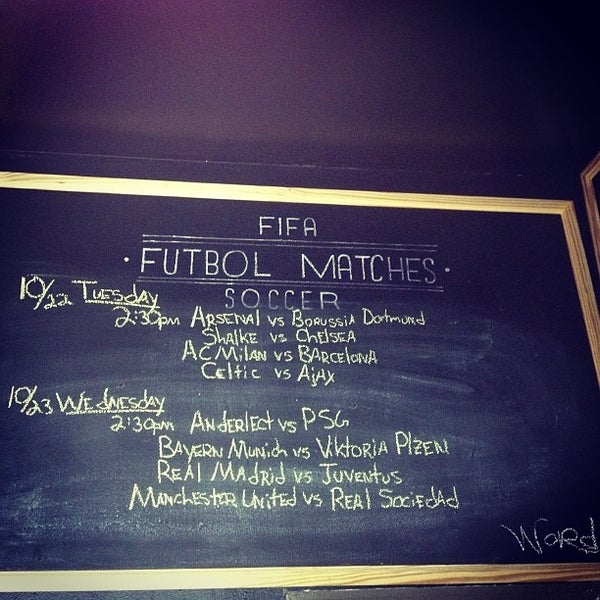 FIFA
FUTBOL MATCHES
SOCCER
10/22 TUESDAY
2:30pm ARSENAL vs BORUSSIA DORTMUND
SHALKE vs CHELSEA
AC MILAN vs BARCELONA
CELTIC vs AJAX
10/23 WEDNESDAY
2:30pm ANDERLECT vs PSG
BAYERN MUNICH vs VIKTORIA PLZEN
REAL MADRID vs JUVENTUS
MANCHESTER UNITED vs REAL SOCIEDAD
Ward